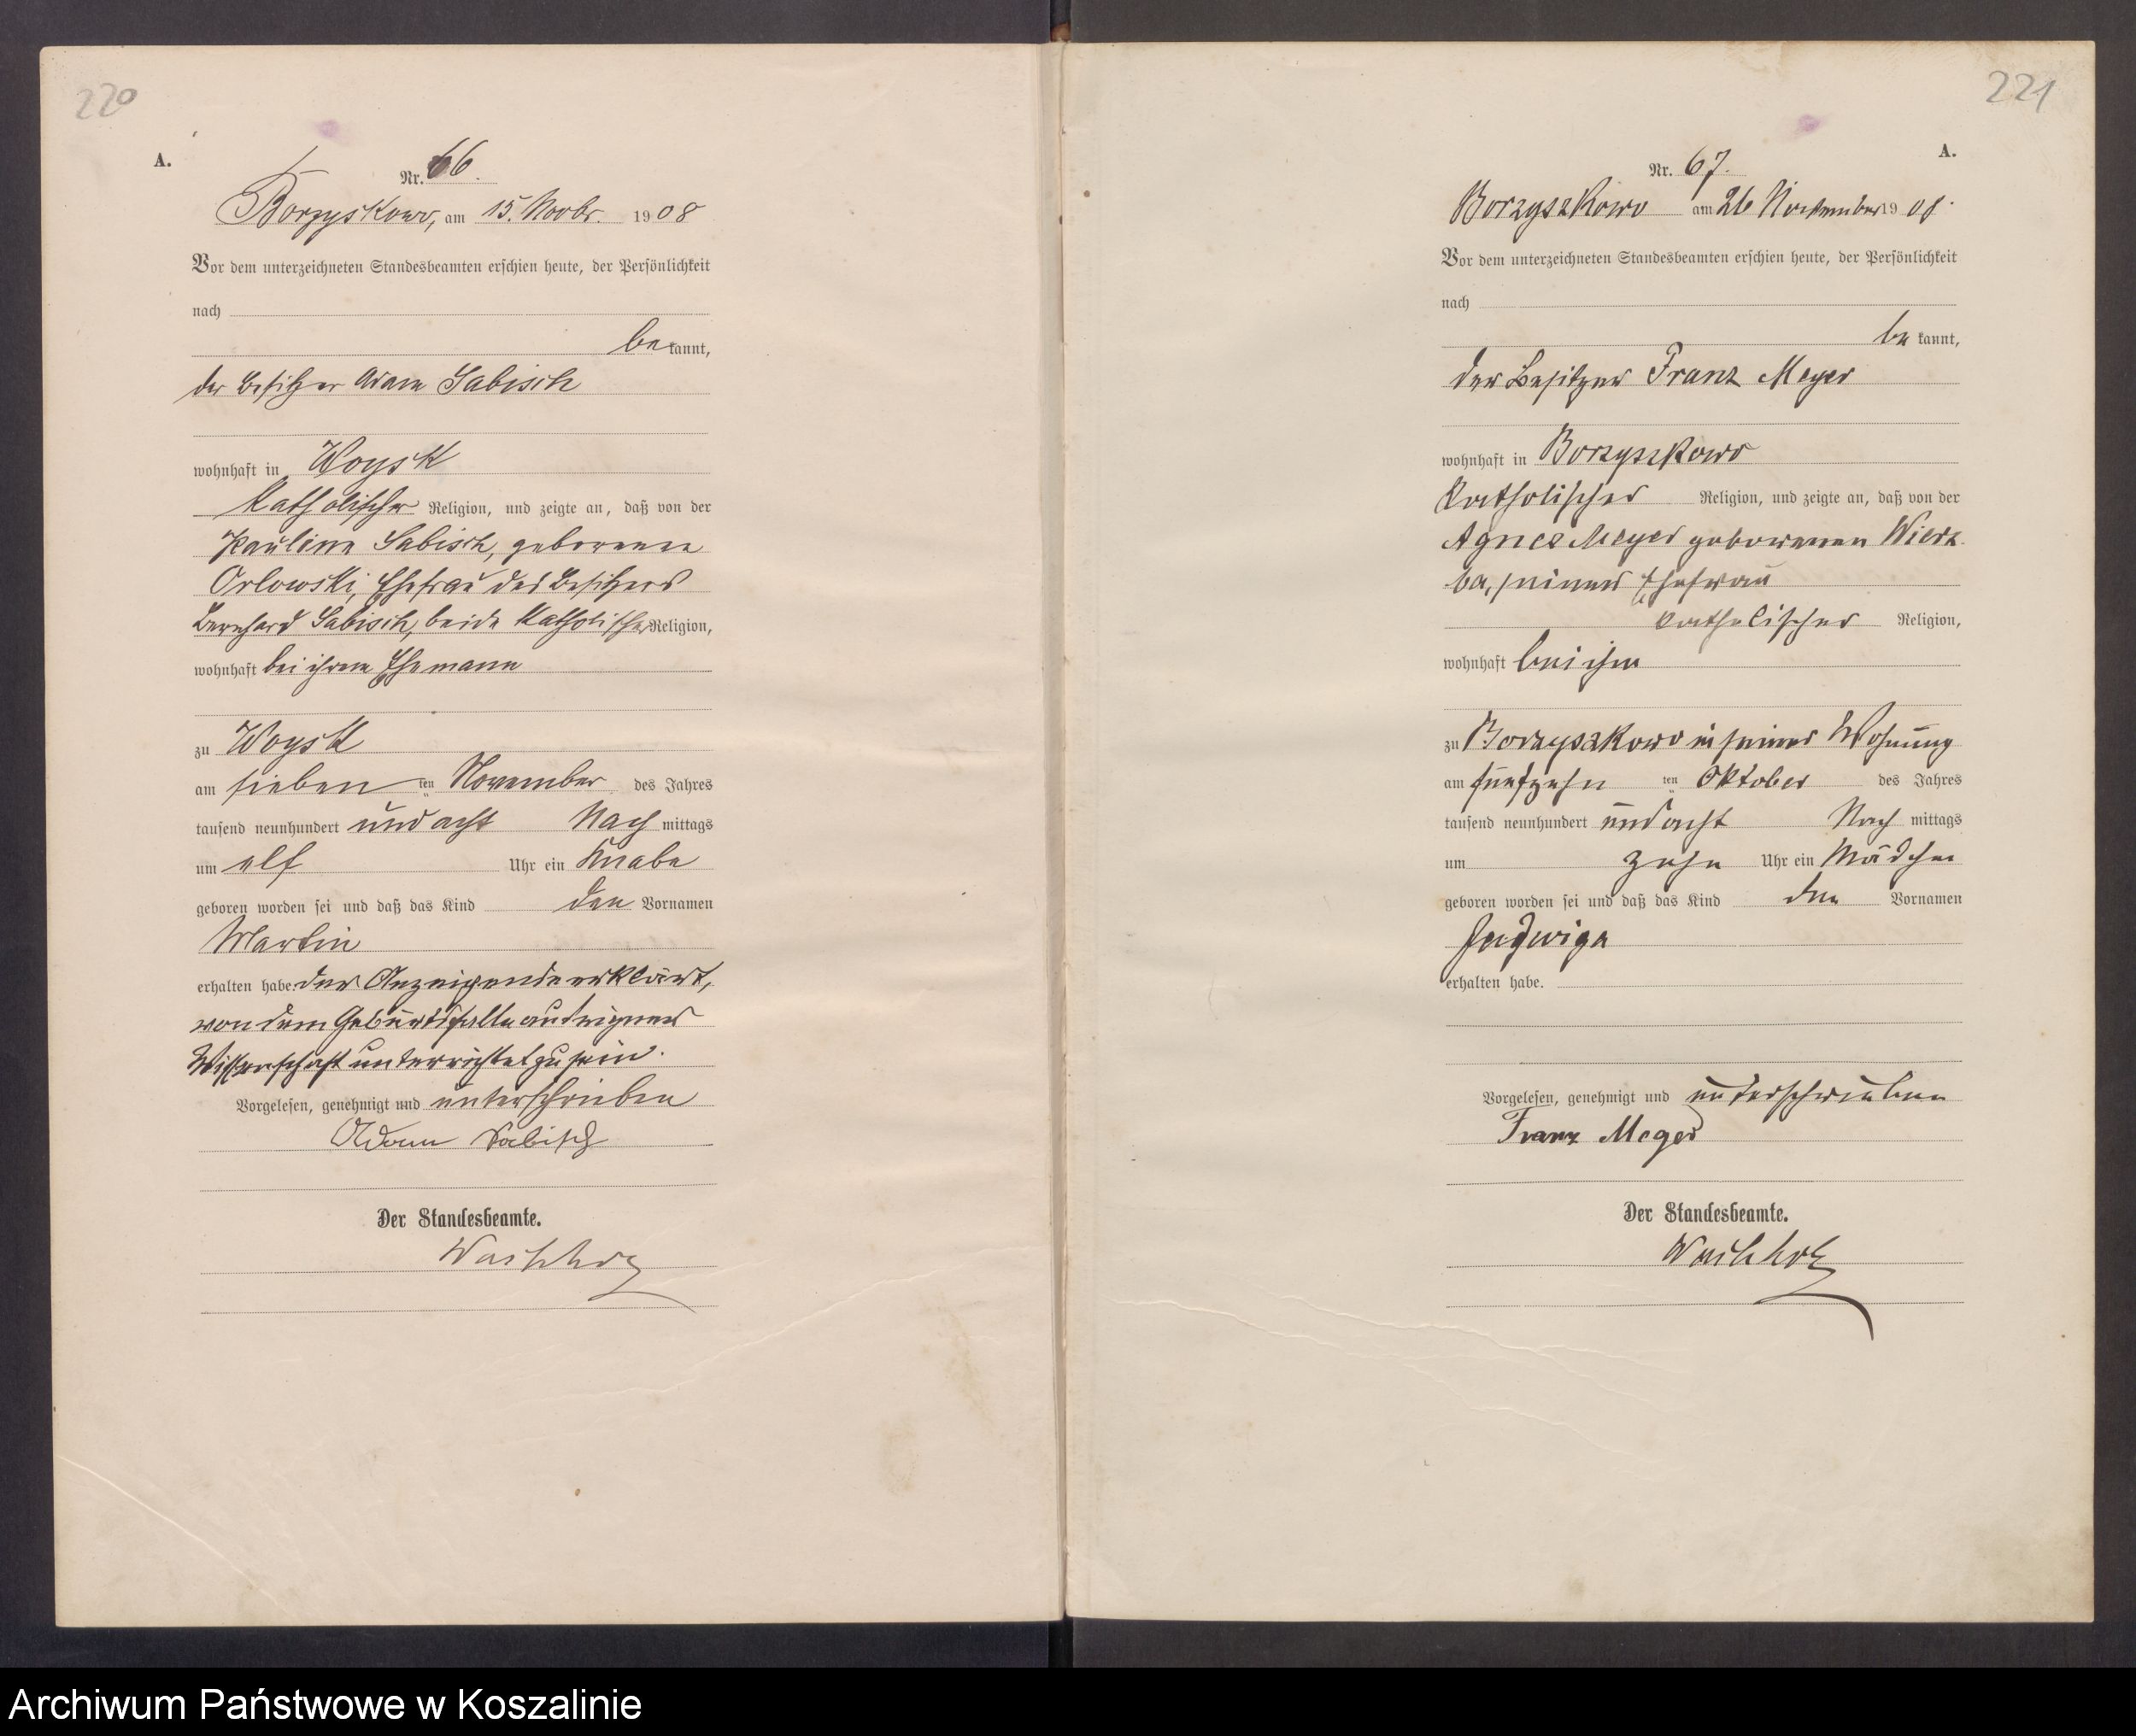 220
A.
Nr. 66.
Borzyskowo, am 15. Novbr. 1908
Vor dem unterzeichneten Standesbeamten erschien heute, der Persönlichkeit
nach
bekannt,
der Besitzer Adam Sabisch
wohnhaft in Woysk
katholischer Religion, und zeigte an, daß von der
Pauline Sabisch, geborenen
Orlowski, Ehefrau des Besitzers
Bernhard Sabisch, beide katholischer Religion,
wohnhaft bei ihrem Ehemann
zu Woysk
am sieben ten November des Jahres
tausend neunhundert und acht Nachmittags
um elf Uhr ein Knabe
geboren worden sei und daß das Kind den Vornamen
Martin
erhalten habe. der Anzeigende erklärt,
von dem Geburtsfalle aus eigener
Wissenschaft unterrichtet zu sein.
Vorgelesen, genehmigt und unterschrieben
Adam Sabisch
Der Standesbeamte.
221
A.
Nr. 67.
Borzyszkowo am 26 November 1908.
Vor dem unterzeichneten Standesbeamten erschien heute, der Persönlichkeit
nach
bekannt,
der Besitzer Franz Meyer
wohnhaft in Borzyszkowo
katholischer Religion, und zeigte an, daß von der
Agnes Meyer geborenen Wierz-
ba, seiner Ehefrau
katholischer Religion,
wohnhaft bei ihm
zu Borzyszkowo in seiner Wohnung
am fünfzehn ten Oktober des Jahres
tausend neunhundert und acht Nach mittags
um zehn Uhr ein Mädchen
geboren worden sei und daß das Kind den Vornamen
Hedwiga
erhalten habe.
Vorgelesen, genehmigt und unterschrieben
Franz Meyer
Der Standesbeamte.
Archiwum Państwowe w Koszalinie